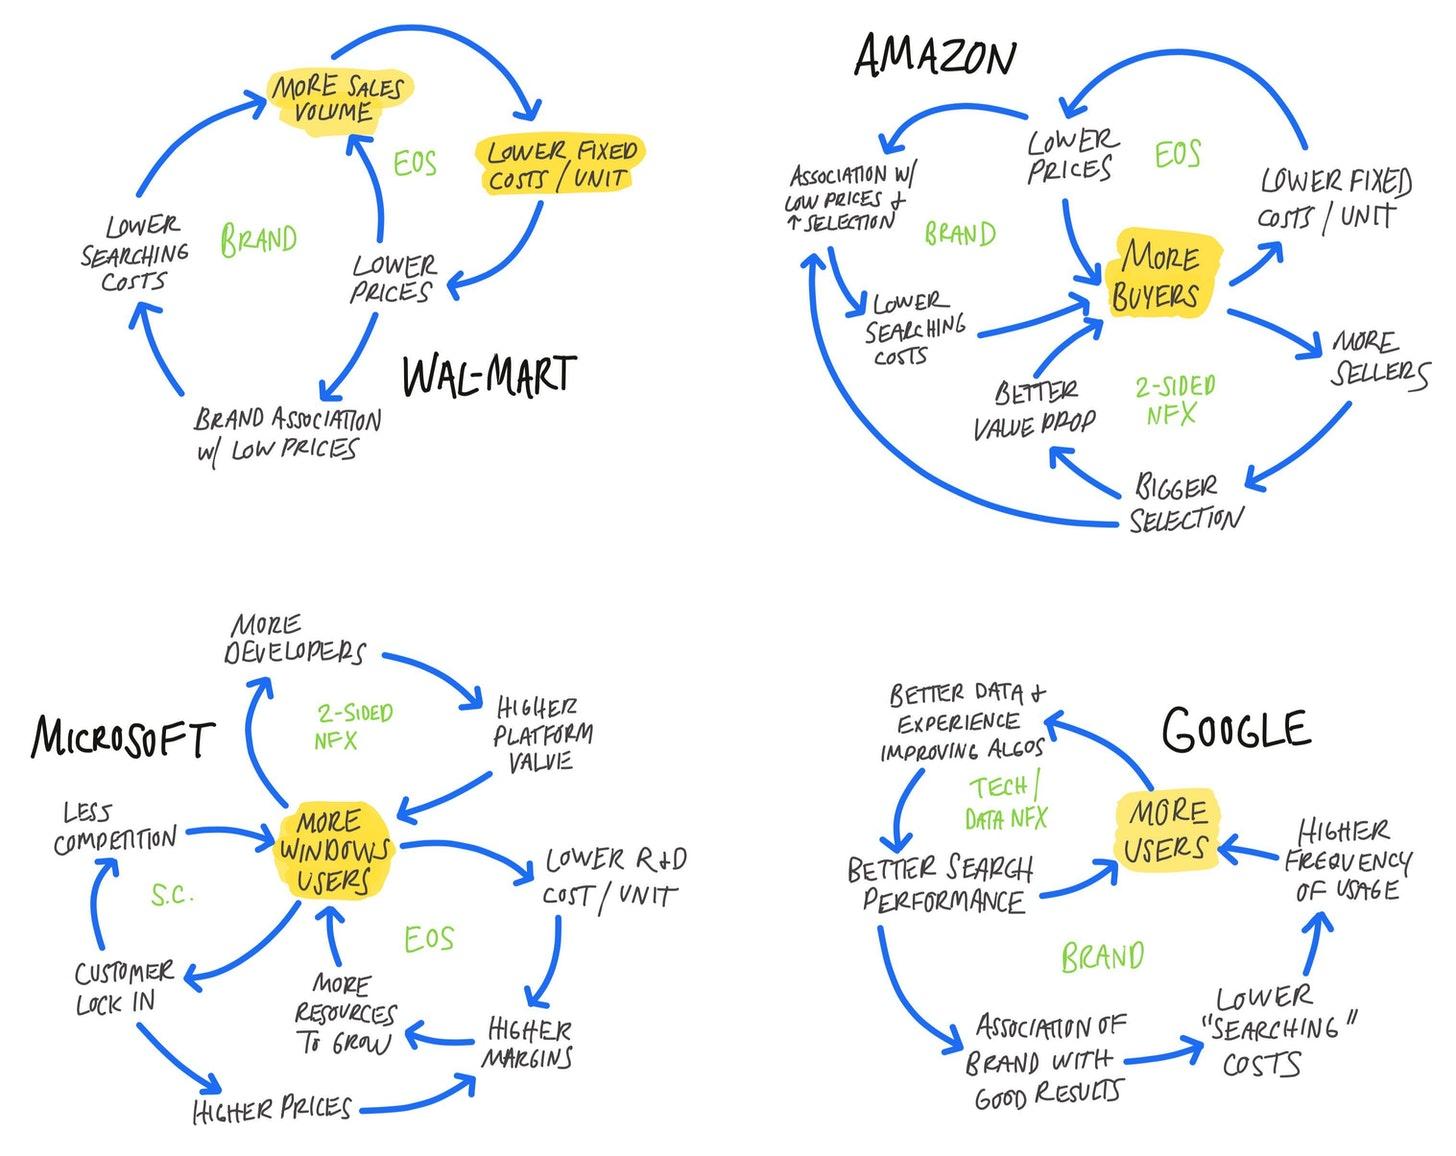 MORE SALES
VOLUME
EOS
LOWER FIXED
COSTS / UNIT
LOWER
SEARCHING
COSTS
BRAND
LOWER
PRICES
WAL-MART
BRAND ASSOCIATION
w/ LOW PRICES
AMAZON
LOWER
PRICES
EOS
ASSOCIATION W/
LOW PRICES +
↑ SELECTION
LOWER FIXED
COSTS / UNIT
BRAND
MORE
BUYERS
LOWER
SEARCHING
COSTS
MORE
SELLERS
BETTER
VALUE PROP
2-SIDED
NFX
BIGGER
SELECTION
MORE
DEVELOPERS
MICROSOFT
2-SIDED
NFX
HIGHER
PLATFORM
VALUE
LESS
COMPETITION
MORE
WINDOWS
USERS
LOWER R+D
COST / UNIT
S.C.
EOS
CUSTOMER
LOCK IN
MORE
RESOURCES
TO GROW
HIGHER
MARGINS
HIGHER PRICES
BETTER DATA +
EXPERIENCE
IMPROVING ALGOS
GOOGLE
TECH /
DATA NFX
MORE
USERS
HIGHER
FREQUENCY
OF USAGE
BETTER SEARCH
PERFORMANCE
BRAND
LOWER
"SEARCHING"
COSTS
ASSOCIATION OF
BRAND WITH
GOOD RESULTS